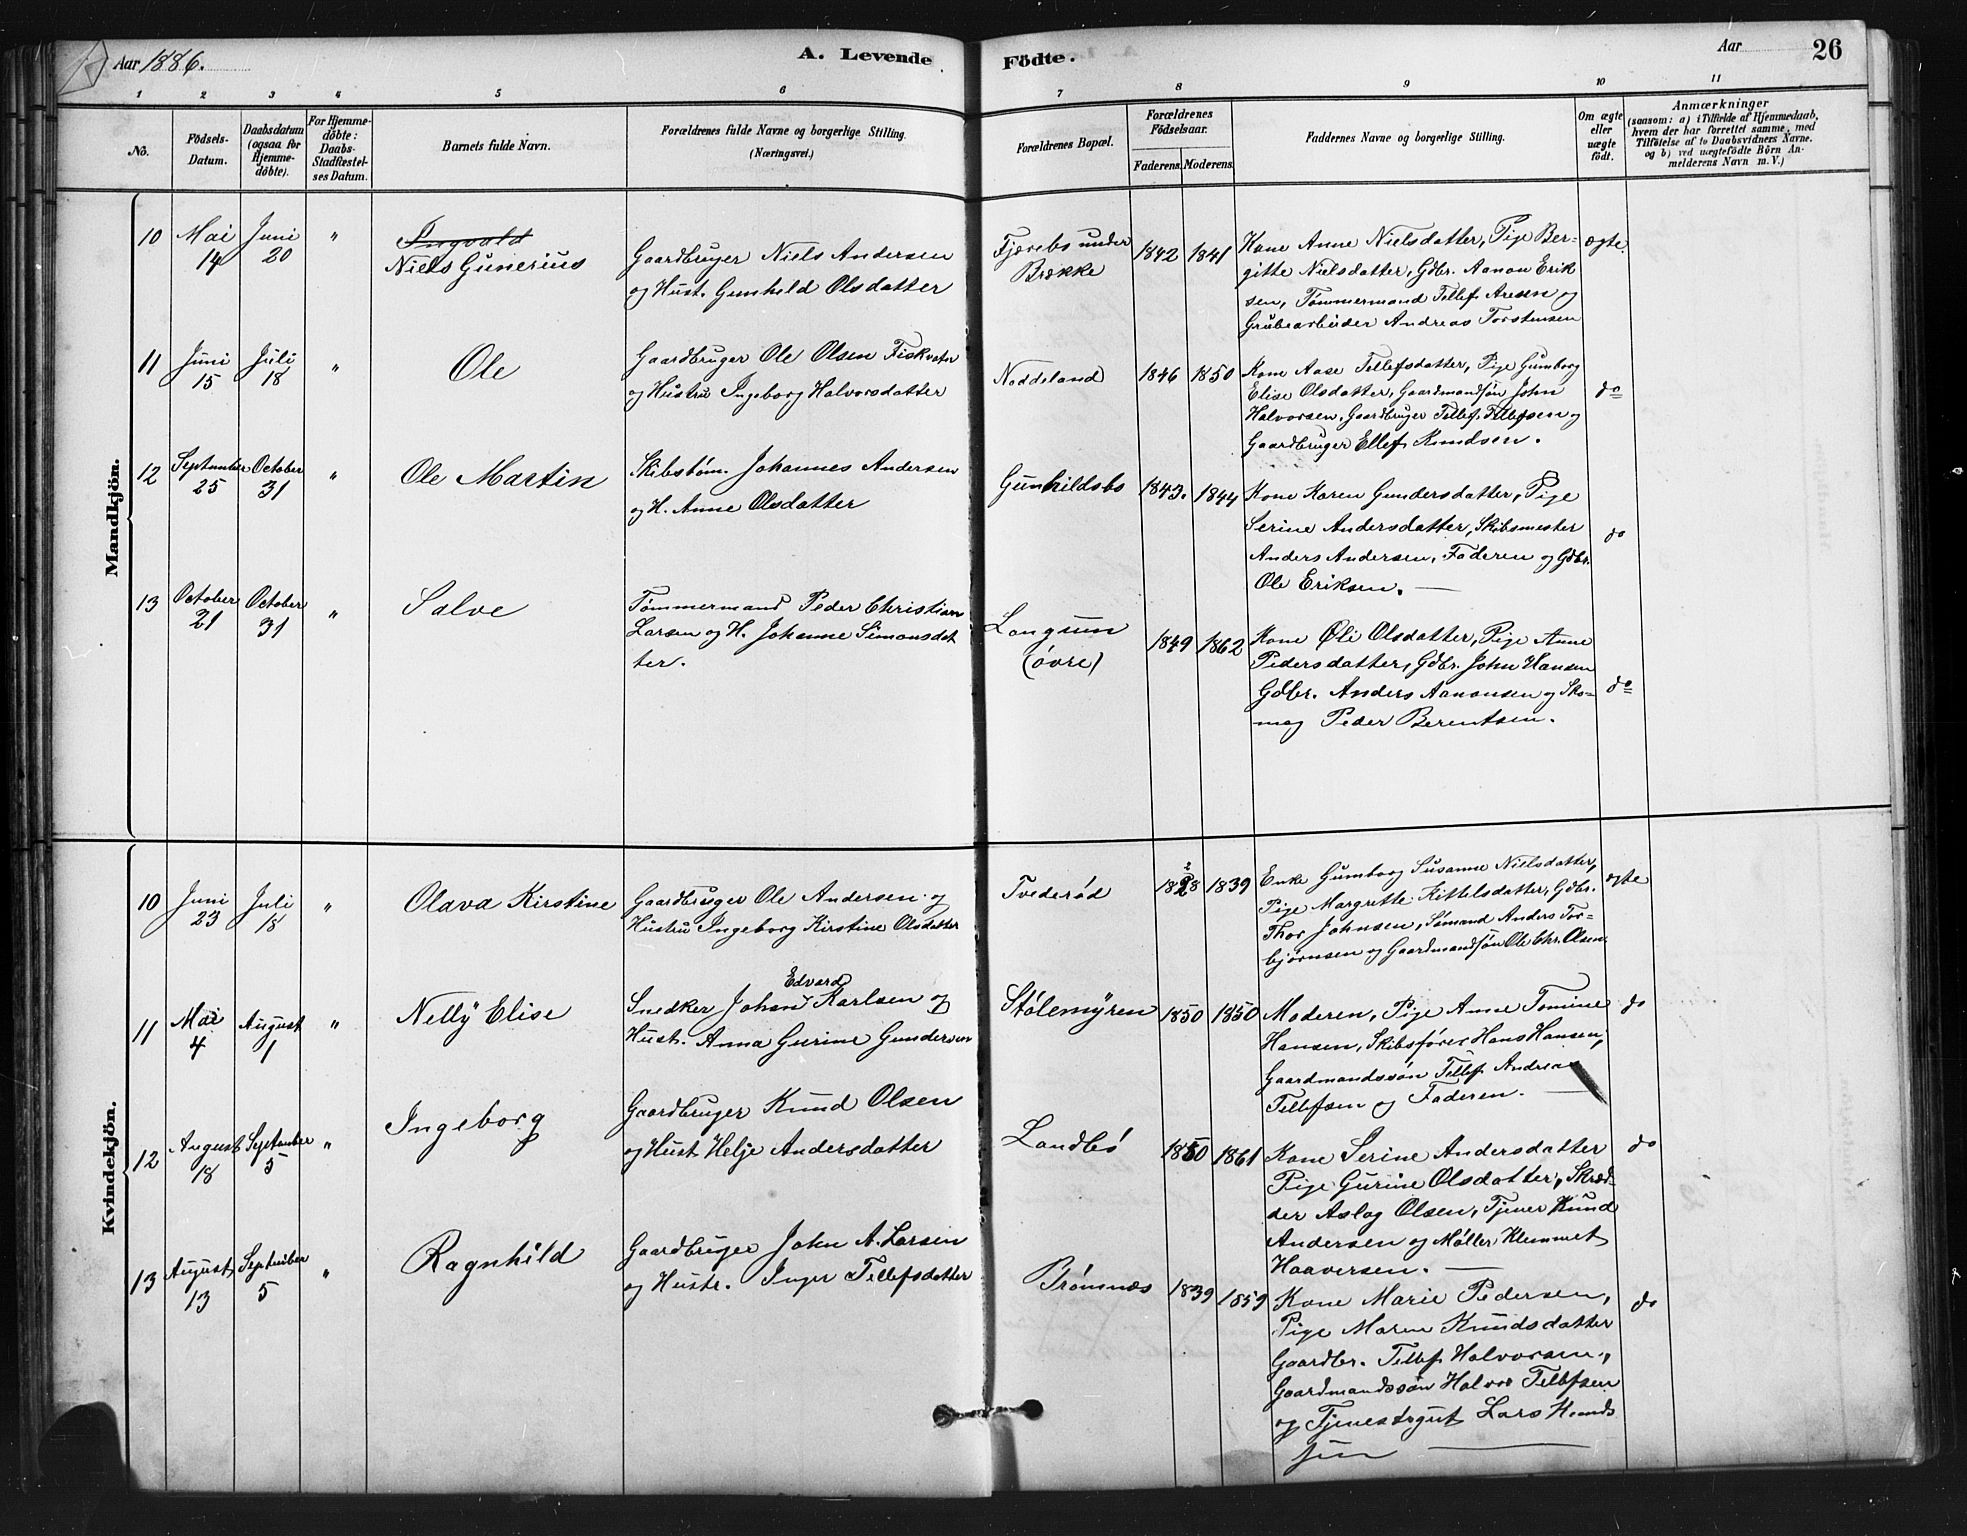 Aar 1886.
A. Levende Födte.
Aar
26
1 2 3 4 5 6 7 8 9 10 11
No.
Födsels-
Datum.
Daabsdatum
(ogsaa for
Hjemme-
döbte).
For Hjemme-
döbte:
Daabs-
Stadfæstel-
ses Datum.
Barnets fulde Navn.
Forældrenes fulde Navne og borgerlige Stilling.
(Næringsvei.)
Forældrenes Bopæl.
Forældrenes
Födselsaar.
Faderens. Moderens.
Faddernes Navne og borgerlige Stilling.
Om ægte
eller
uægte
födt.
Anmærkninger
(saasom: a) i Tilfælde af Hjemmedaab,
hvem der har forrettet samme, med
Tilföielse af to Daabsvidners Navne.
og b) ved uægtefödte Börn An-
melderens Navn m. V.)
Mandkjön.
10
Mai
14
Juni
20
"
Ingvald
Niels Gunerius
Gaardbruger Niels Andersen
og Hust. Gunhild Olsdatter
Fjærebo under
Brække
1842 1841
Kone Anne Nielsdatter, Pige Ber-
gitte Nielsdatter, Gdbr. Aanon Erik
sen, Tømmermand Tellef Aresen og
Grubearbeider Andreas Torstensen
ægte.
11
Juni
15
Juli
18
"
Ole
Gaardbruger Ole Olsen Fiskvatn
og Hustru Ingeborg Halvorsdatter
Noddeland
1846 1850
Kone Aase Tellefsdatter, Pige Gumborg
Elise Olsdatter, Gaardmandsøn John
Halvorsen, Gaardbruger Tellef Tellefsen og
Gaardbruger Ellef Knudsen.
do
12
September
25
October
31
"
Ole Martin
Skibstøm. Johannes Andersen
og H. Anne Olsdatter
Gunhildsbo
1843. 1844
Kone Karen Gundersdatter, Pige
Serine Andersdatter, Skibsmester
Anders Andersen, Faderen og Gdbr.
Ole Eriksen.
do
13
October
21
October
31
"
Salve
Tømmermand Peder Christian
Larsen og H. Johanne Simonsdat
ter.
Langum
(øvre)
1849 1862
Kone Øli Olsdatter, Pige Anne
Pedersdatter, Gdbr. John Hansen
Gdbr. Anders Aanonsen og Sko-
mag Peder Berentsen.
do
Kvindekjön.
10
Juni
23
Juli
18
"
Olava Kirstine
Gaardbruger Ole Andersen og
Hustru Ingeborg Kirstine Olsdatter
Tvederød
1828 1839
Enke Gumborg Susanne Nielsdatter,
Pige Margrethe Kittelsdatter, Gdbr.
Thor Johnsen, Sømand Anders Tor-
bjørnsen og Gaardmandsøn Ole Chr. Olsen.
ægte
11
Mai
4
August
1
"
Nelly Elise
Edvard
Snedker Johan Karlsen og
Hust. Anna Gurine Gundersen
Stølemyren
1850 1850
Moderen, Pige Anne Tomine
Hansen, Skibsfører Hans Hansen,
Gaardmandssøn Tellef Andreas
Tellefsen og Faderen.
do
12
August
18
September
5
"
Ingeborg
Gaardbruger Knud Olsen
og Hust Helje Andersdatter
Landbø
1850 1861
Kone Serine Andersdatter
Pige Gurine Olsdatter, Skræd-
der Aslag Olsen, Tjener Knud
Andersen og Møller Klemmet
Haaversen.
do
13
August
13
September
5
"
Ragnhild
Gaardbruger John A. Larsen
og Hustr. Inger Tellefsdatter
Brømnæs
1839 1859
Kone Marie Pedersen,
Pige Maren Knudsdatter
Gaardbr. Tellef Halvorsen,
Gaardmandssøn Halvor Tellefsen
og Tjenestegut Lars
sen
do